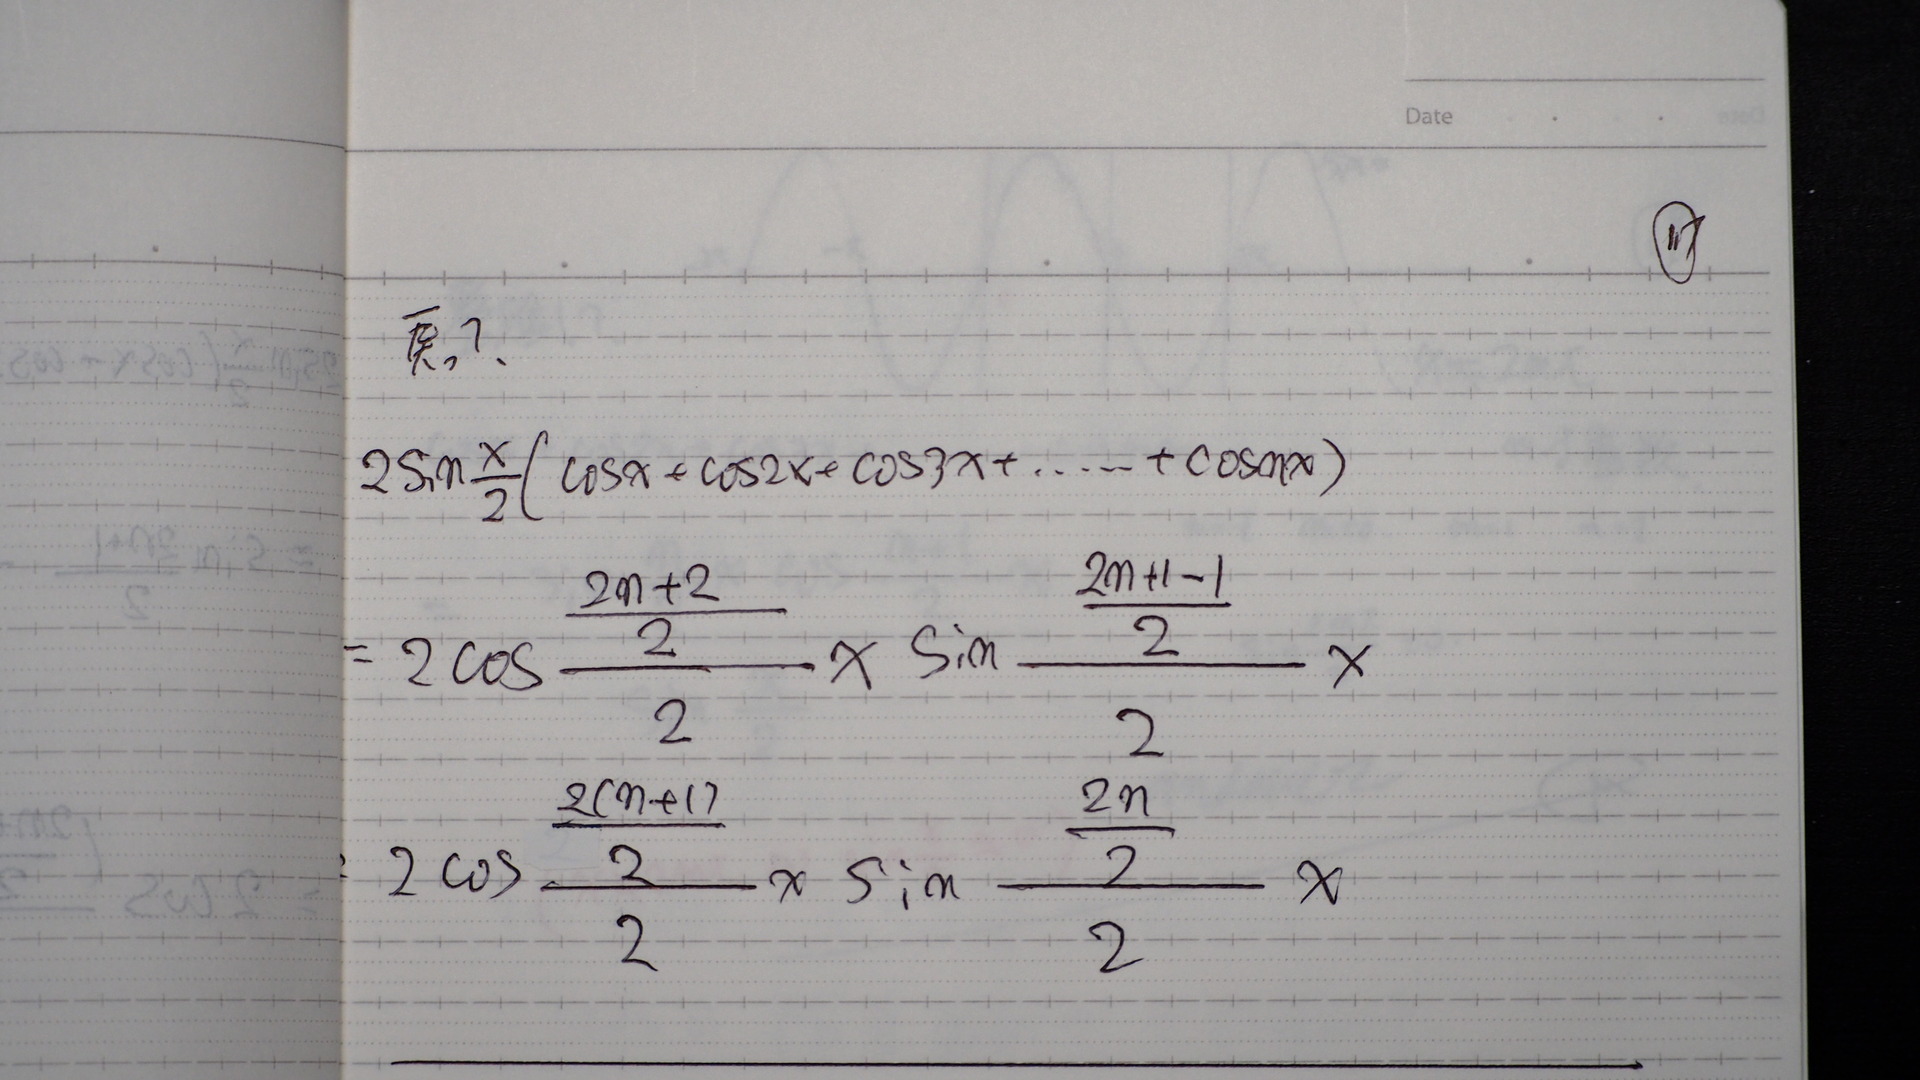 Date
2 sin x/2 ( cosx + cos2x + cos3x + ...... + cosnx )
= 2 cos ((2n+2)/2)/2 x sin ((2n+1-1)/2)/2 x
= 2 cos (2(n+1)/2)/2 x sin (2n/2)/2 x